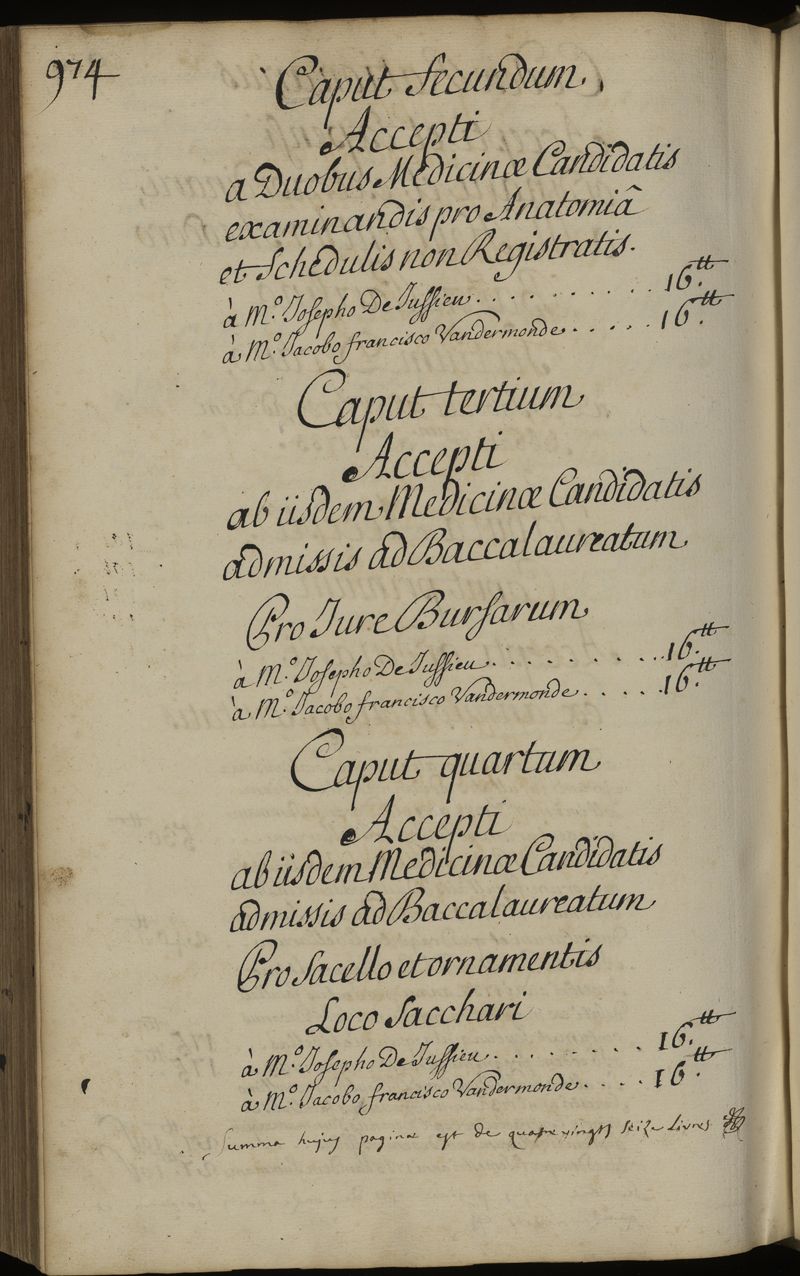 974
Caput secundum.
Accepti
a Duobus Medicinæ Candidatis
examinandis pro Anatomiâ
et Schedulis non Registratis.
à M.º Josepho De Jussieu . . . . . . . . . . 16.tt
à M.º Jacobo francisco Vandermonde . . . . . 16.tt
Caput tertium
Accepti
ab iisdem Medicinæ Candidatis
admissis ad Baccalaureatum
Pro Jure Bursarum
à M.º Josepho De Jussieu . . . . . . . . . 16.tt
à M.º Jacobo francisco Vandermonde . . . . . 16.tt
Caput quartum
Accepti
ab iisdem Medicinæ Candidatis
admissis ad Baccalaureatum
Pro Sacello et ornamentis
Loco Sacchari
à M.º Josepho De Jussieu . . . . . . . . 16.tt
à M.º Jacobo francisco Vandermonde . . . . 16.tt
Summa hujus paginæ est de quatrevingts seize Livres